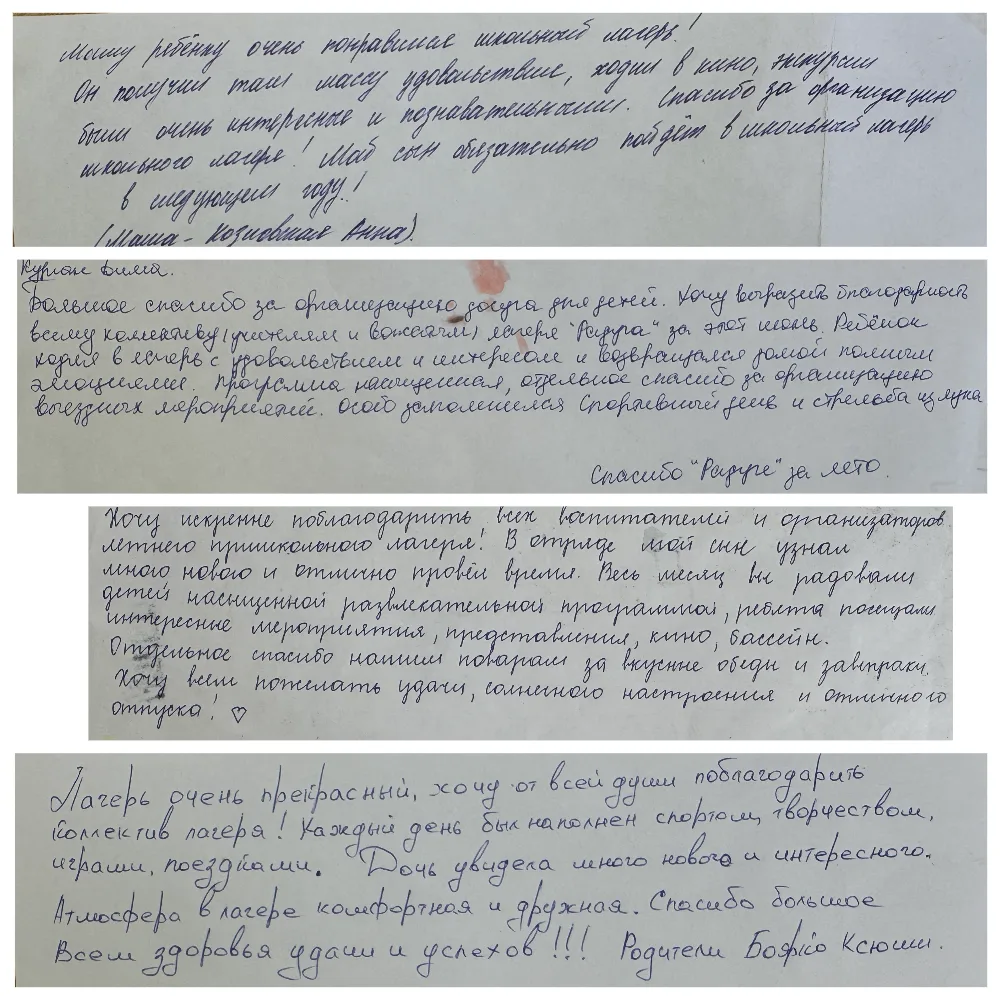 Моему ребёнку очень понравился школьный лагерь!
Он получил там массу удовольствие, ходил в кино, экскурсии
были очень интересные и познавательными. Спасибо за организацию
школьного лагеря! Мой сын обязательно пойдёт в школьный лагерь
в следующем году!
(Мама - Козловская Анна).
Дима.
Большое спасибо за организацию досуга для детей. Хочу выразить благодарность
всему коллективу (учителям и вожатым) лагеря "Радуга" за этот июнь. Ребёнок
ходил в лагерь с удовольствием и интересом и возвращался домой полным
эмоциями. Программа насыщенная, отдельное спасибо за организацию
выездных мероприятий. Особо запомнился Спортивный день и стрельба из лука
Спасибо "Радуге" за лето.
Хочу искренне поблагодарить всех воспитателей и организаторов
летнего пришкольного лагеря! В отряде мой сын узнал
много нового и отлично провёл время. Весь месяц вы радовали
детей насыщенной развлекательной программой, ребята посещали
интересные мероприятия, представления, кино, бассейн.
Отдельное спасибо нашим поварам за вкусные обеды и завтраки.
Хочу всем пожелать удачи, солнечного настроения и отличного
отпуска! ♡
Лагерь очень прекрасный, хочу от всей души поблагодарить
коллектив лагеря! Каждый день был наполнен спортом, творчеством,
играми, поездками. Дочь увидела много нового и интересного.
Атмосфера в лагере комфортная и дружная. Спасибо большое
Всем здоровья удачи и успехов!!! Родители Ксюши.